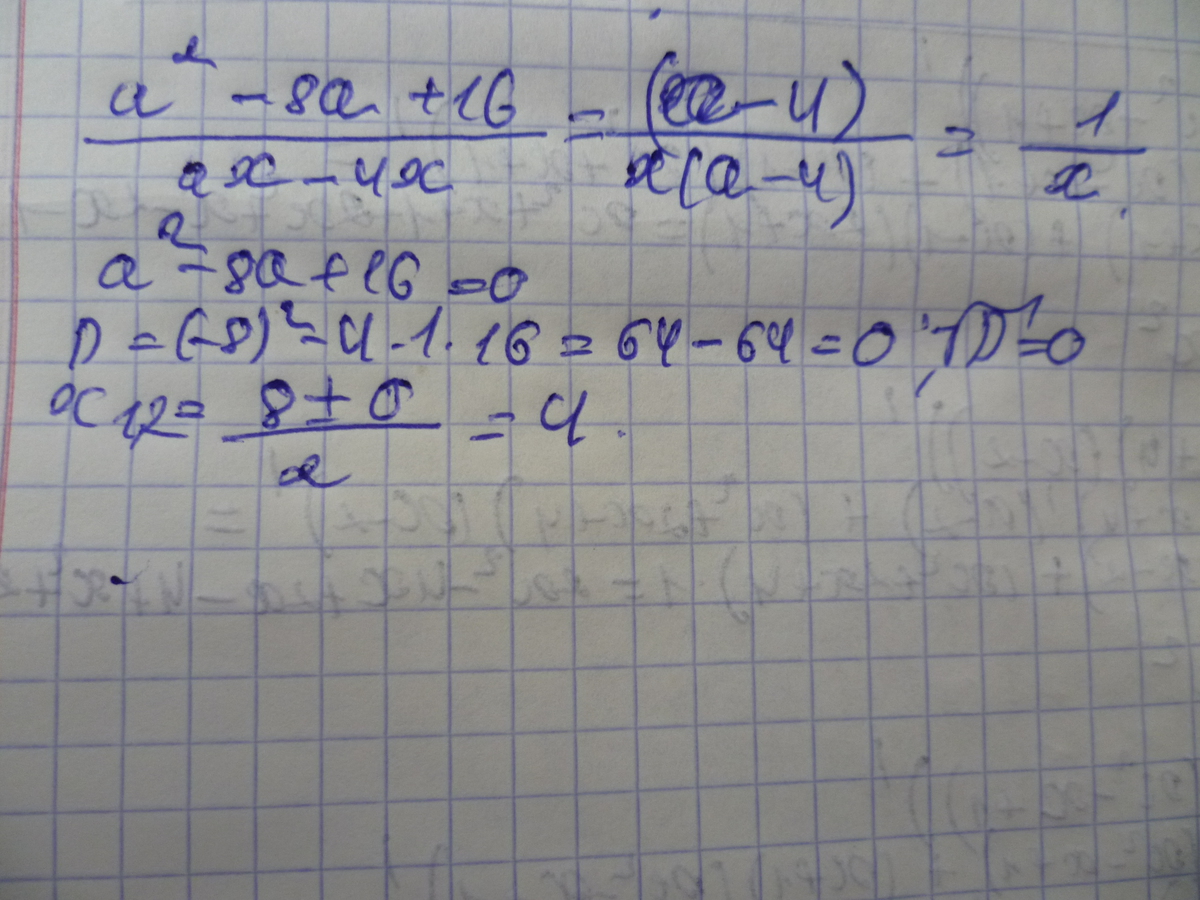 a² - 8a + 16 / ax - 4x = (a - 4) / x(a - 4) = 1 / x.
a² - 8a + 16 = 0
D = (-8)² - 4 · 1 · 16 = 64 - 64 = 0; √D = 0
x₁,₂ = 8 ± 0 / 2 = 4.